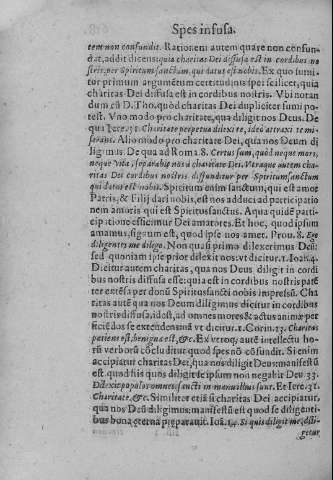 Spes infusa.
tem non confundit. Rationem autem quare non confun-
dat, addit dicens; quia charitas Dei diffusa est in cordibus no
stris, per Spiritum sanctum, qui datus est nobis. Ex quo sumi-
tur primum argumẽtum certitudinis spei scilicet, quia
charitas Dei diffusa est in cordibus nostris. Vbi notan
dum est D. Tho. quòd charitas Dei dupliciter sumi po-
test. Vno modo pro charitate, qua diligit nos Deus. De
qua Iere. 31. Charitate perpetua dilexi te, ideò attraxi te mi-
serans. Alio modo pro charitate Dei, qua nos Deum di
ligimus. De qua ad Roma. 8. Certus sum, quòd neque mors,
neque vita separabit nos à charitate Dei. Vtraque autem cha-
ritas Dei cordibus nostris diffunditur per Spiritum sanctum
qui datus est nobis. Spiritum enim sanctum, qui est amor
Patris, & Filij dari nobis, est nos adduci ad participatio
nem amoris qui est Spiritus sanctus. A qua quidẽ parti-
cipatione efficimur Dei amatores. Et hoc, quod ipsum
amamus, signum est, quod ipse nos amet. Prou. 8. Ego
diligentes me diligo. Non quasi primo dilexerimus Deũ:
sed quoniam ipse prior dilexit nos: vt dicitur. 1. Ioan. 4.
Dicitur autem charitas, qua nos Deus diligit in cordi
bus nostris diffusa esse: quia est in cordibus nostris patẽ
ter extẽsa per donũ Spiritus sancti nobis impressũ. Cha
ritas autẽ qua nos Deum diligimus dicitur in cordibus
nostris diffusa, idest, ad omnes mores & actus animæ per
ficiẽdos se extendens iuxtà vt dicitur. 1. Corin. 13. Charitas
patiens est, benigna est, &c. Ex vtroq; autẽ intellectu ho
rũ verborũ cõcluditur quod spes nõ cõfundit. Si enim
accipiatur charitas Dei, qua nos diligit Deus: manifestũ
est quod iis quos diligit se ipsum non negabit Deu. 33.
Dilexit populos omnes sancti in manu illius sunt. Et Iere. 31.
Charitate, &c. Similiter etiã si charitas Dei accipiatur,
qua nos Deũ diligimus: manifestũ est quod se diligenti-
bus bona æterna præparauit. Ioa. 14. Si quis diligit me, dili-
getur